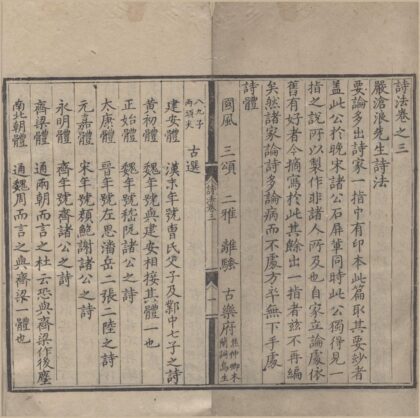 詩法卷之三
嚴滄浪先生詩法
要論多出詩家一指中有印本此篇取其要紗者
盖此公於晚宋諸公石屏軰同時此公獨得見一
指之說所以製作非諸人所及也自家立論處依
舊有好者今摘寫於此其餘出一指者玆不再編
矣然諸家論詩多論病而不處方卒無下手處
詩體
國風 三頌 二雅 離騷 古樂府 焦仲卿木蘭詞烏生
詩法卷三 一
八九子兩頭 古選
建安體 漢末年號曹氏父子及鄴中七子之詩
黄初體 魏年號與建安相接其體一也
正始體 魏年號嵇阮諸公之詩
太康體 晉年號左思潘岳二張二陸之詩
元嘉體 宋年號顏鮑謝諸公之詩
永明體 齊年號齊諸公之詩
齊梁體 通兩朝而言之杜云恐與齊梁作後塵
南北朝體 通魏周而言之與齊梁一體也